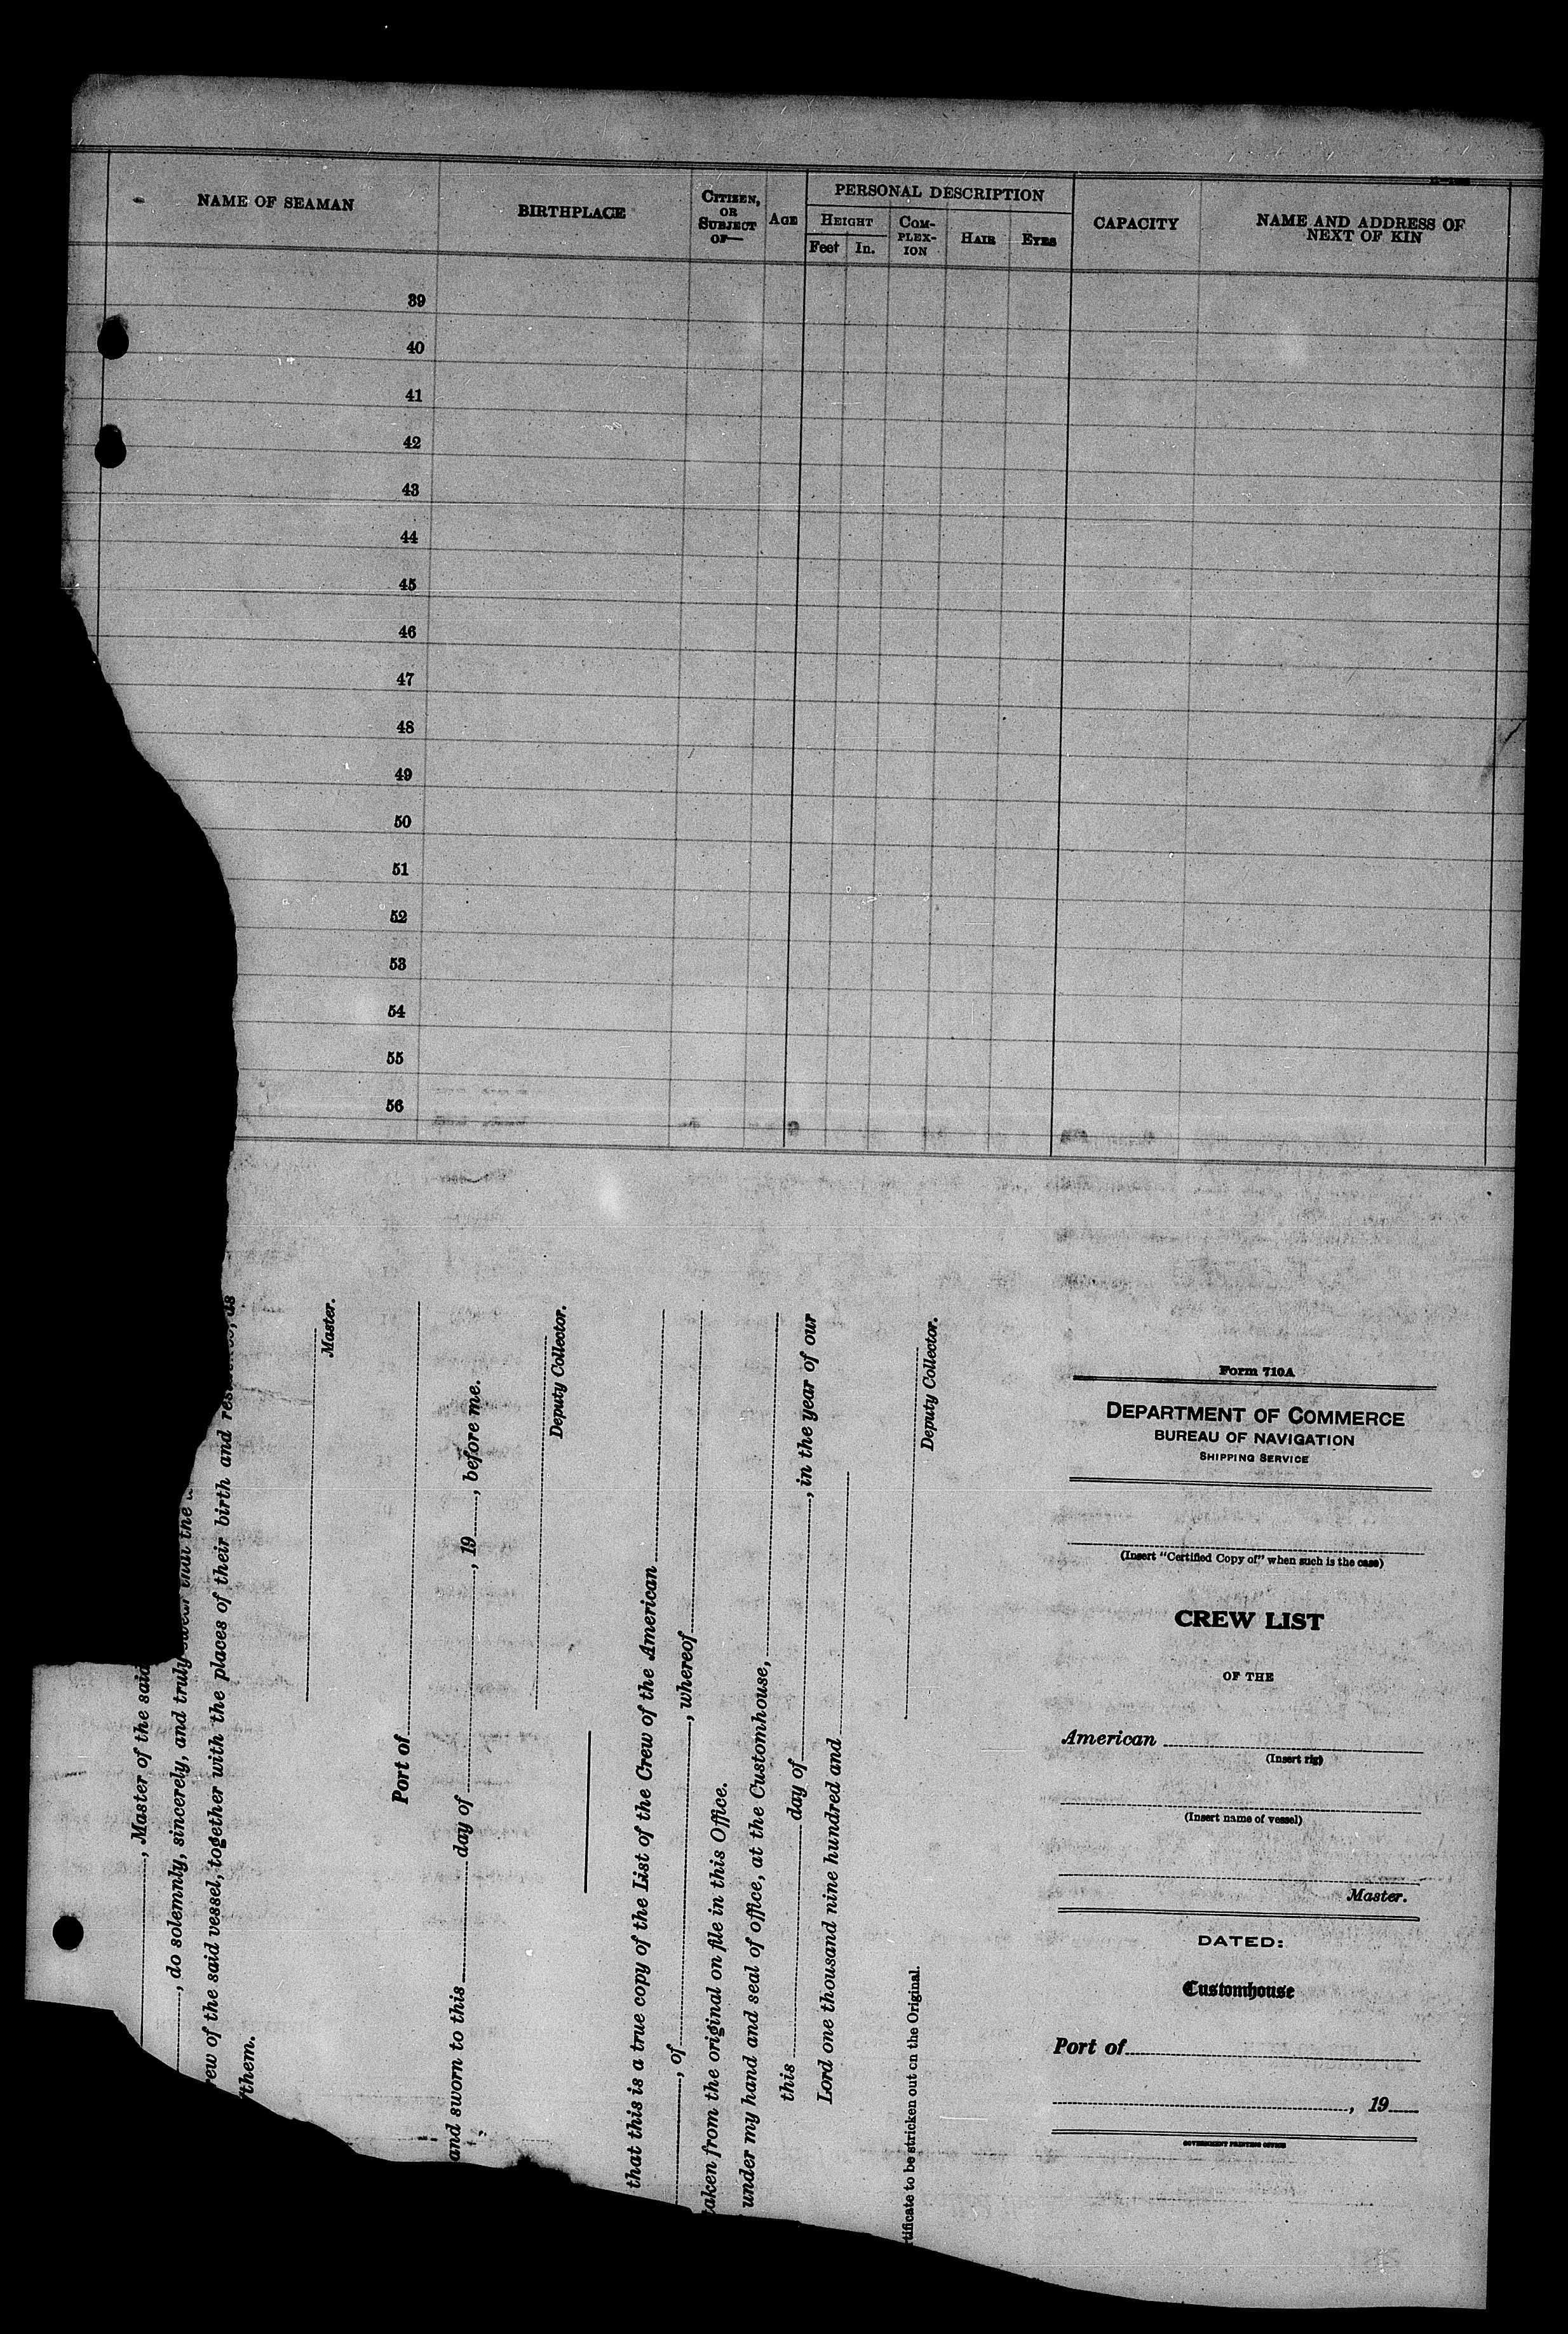 NAME OF SEAMAN
BIRTHPLACE
CITIZEN,
OR
SUBJECT
OF—
AGE
PERSONAL DESCRIPTION
HEIGHT
Feet
In.
COM-
PLEX-
ION
HAIR
EYES
CAPACITY
NAME AND ADDRESS OF
NEXT OF KIN
39
40
41
42
43
44
45
46
47
48
49
50
51
52
53
54
55
56
, Master of the said
, do solemnly, sincerely, and truly swear that the
rew of the said vessel, together with the places of their birth and as
them.
Master.
Port of
and sworn to this day of , 19 , before me.
Deputy Collector.
that this is a true copy of the List of the Crew of the American
, of , whereof
taken from the original on file in this Office.
under my hand and seal of office, at the Customhouse,
this day of , in the year of our
Lord one thousand nine hundred and
Deputy Collector.
tificate to be stricken out on the Original.
Form 710A
DEPARTMENT OF COMMERCE
BUREAU OF NAVIGATION
SHIPPING SERVICE
(Insert "Certified Copy of" when such is the case)
CREW LIST
OF THE
American
(Insert rig)
(Insert name of vessel)
Master.
DATED:
Customhouse
Port of
, 19
GOVERNMENT PRINTING OFFICE